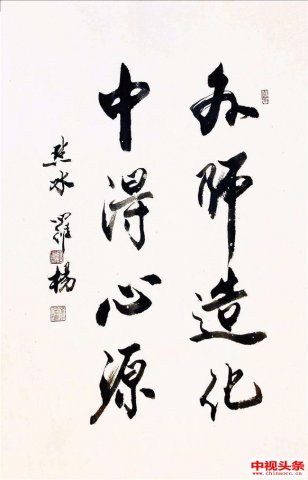 外师造化
中得心源
点水 罗杨
中视头条
www.chinaocc.cn